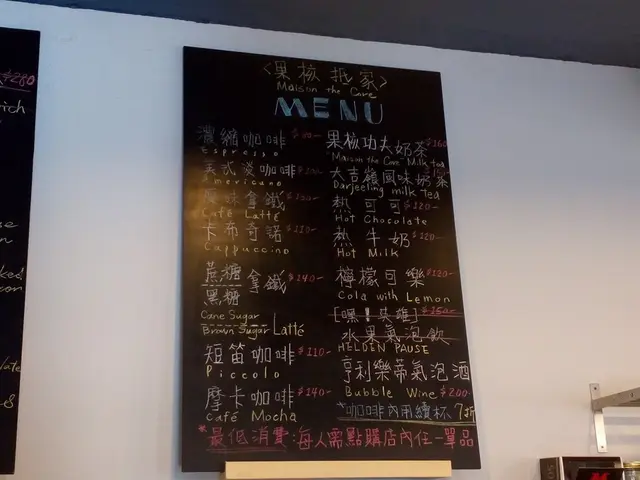 <果核抵家>
Maison the Core
MENU
濃縮咖啡
Espresso
美式淡咖啡
Americano
原味拿鐵
Café Latté
卡布奇諾 $110-
Cappuccino
蔗糖 拿鐵 $140-
黑糖
Cane Sugar
Brown Sugar Latté
短笛咖啡 $110-
Piccolo
摩卡咖啡 $140-
Café Mocha
果核功夫奶茶 $160
"Maison the Core" Milk tea
大吉嶺風味奶茶
Darjeeling milk Tea
熱可可 $120-
Hot Chocolate
熱牛奶 $120-
Hot Milk
檸檬可樂 $120-
Cola with Lemon
[嘿!英雄] $250-
水果氣泡飲
HELDEN PAUSE
亨利樂蒂氣泡酒
Bubble Wine $200-
*咖啡內用續杯 7折
*最低消費:每人需點購店內任一單品
$280